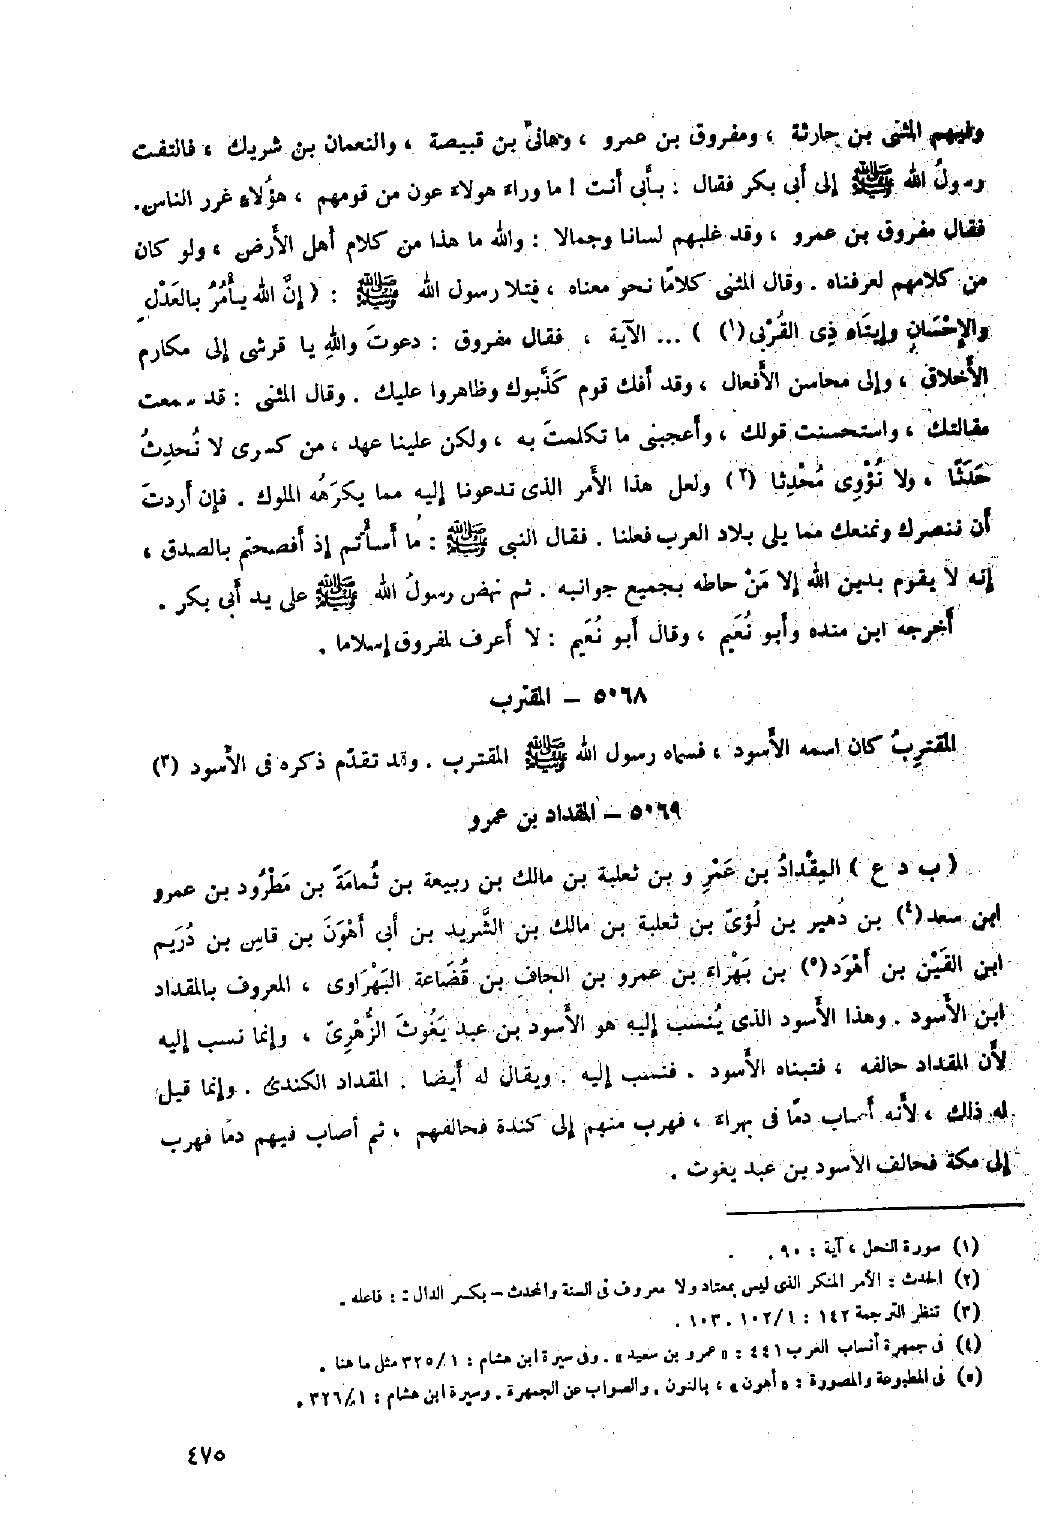 وفيهم المثنى بن حارثة ، ومفروق بن عمرو ، وهانئ بن قبيصة ، والنعمان بن شريك ، فالتفت
رسولُ الله ﷺ إلى أبى بكر فقال : بأبى أنت ! ما وراء هولاء عون من قومهم ، هؤلاء غرر الناس.
فقال مفروق بن عمرو ، وقد غلبهم لسانا وجمالا : والله ما هذا من كلام أهل الأرض ، ولو كان
من كلامهم لعرفناه . وقال المثنى كلامًا نحو معناه ، فتلا رسول الله ﷺ : ( إنَّ الله يأْمُرُ بالعَدْلِ
والإِحْسَانِ وإيتَاء ذِى القُرْبى(١) ) ... الآية ، فقال مفروق : دعوتَ واللهِ يا قرشى إلى مكارم
الأَخلاق ، وإلى محاسن الأَفعال ، وقد أفك قوم كَذَّبوك وظاهروا عليك . وقال المثنى : قد سمعت
مقالتك ، واستحسنت قولك ، وأعجبنى ما تكلمتَ به ، ولكن علينا عهد ، من كسرى لا نُحدِثُ
حَدَثًا ، ولا نُؤْوِى مُحْدِثا (٢) ولعل هذا الأمر الذى تدعونا إليه مما يكرَهُه الملوك . فإن أردتَ
أن ننصرك ونمنعك مما يلى بلاد العرب فعلنا . فقال النبى ﷺ : مُا أَسأْتم إذ أفصحتم بالصدق ،
إنه لا يقوم بدين الله إلا مَنْ حاطه بجميع جوانبه . ثم نهض رسولُ الله ﷺ على يد أبى بكر .
أخرجه ابن منده وأبو نُعَيم ، وقال أبو نُعَيم : لا أعرف لمفروق إسلاما .
٥٠٦٨ – المقترب
المقتربُ كان اسمه الأسود ، فسماه رسول الله ﷺ المقترب . وقد تقدّم ذكره فى الأسود (٣)
٥٠٦٩ – المقداد بن عمرو
( ب د ع ) المِقْدادُ بن عَمْرِ و بن ثعلبة بن مالك بن ربيعة بن ثُمامَةَ بن مَطْرُود بن عمرو
ابن سعد(٤) بن دُهير بن لُؤىّ بن ثعلبة بن مالك بن الشَّريد بن أبى أَهْوَنَ بن قاس بن دُرَيم
ابن القَيْن بن أَهْوَد(٥) بن بَهْرَاءَ بن عمرو بن الحافِ بن قُضَاعة البَهْرَاوى ، المعروف بالمقداد
ابن الأسود . وهذا الأسود الذى يُنسب إليه هو الأسود بن عبد يَغُوثَ الزُّهْرِىّ ، وإنما نسب إليه
لأن المقداد حالفه ، فتبناه الأسود . فنسب إليه . ويقال له أيضا . المقداد الكندىّ . وإنما قيل
له ذلك ، لأنه أصاب دمًا فى بهراء ، فهرب منهم إلى كندة فحالفهم ، ثم أصاب فيهم دمًا فهرب
إلى مكة فحالف الأسود بن عبد يغوث .
(١) سورة النحل ، آية : ٩٠ .
(٢) الحدث : الأمر المنكر الذى ليس بمعتاد ولا معروف فى السنة والمحدث – بكسر الدال – : فاعله .
(٣) تنظر الترجمة ١٤٢ : ١٠٢/١ . ١٠٣ .
(٤) فى جمهرة أنساب العرب ٤٤١ : « عمرو بن سعيد » . وفى سيرة ابن هشام : ٣٢٥/١ مثل ما هنا .
(٥) فى المطبوعة والمصورة : « أهون » ، بالنون . والصواب عن الجمهرة . وسيرة ابن هشام : ٣٢٦/١ .
٤٧٥